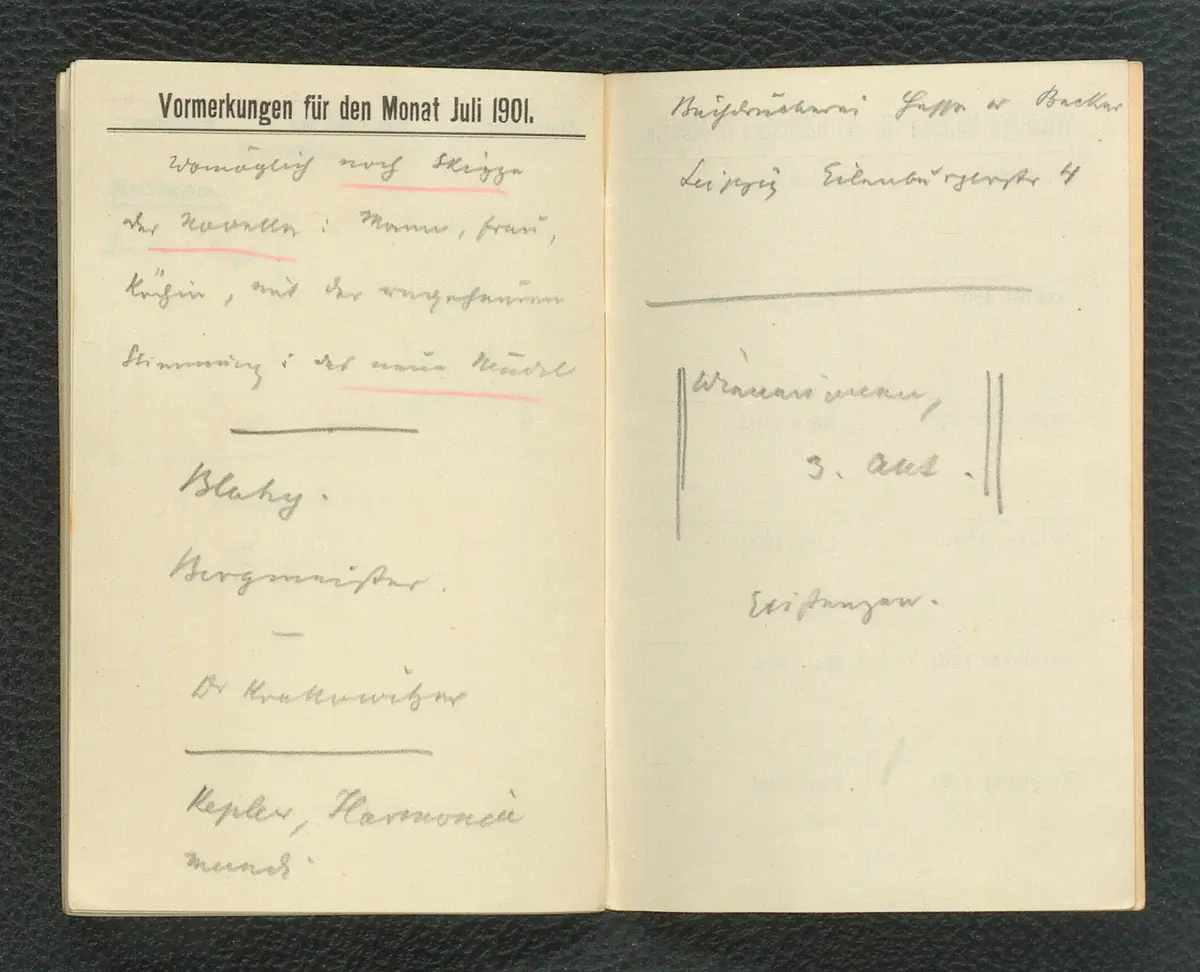 Vormerkungen für den Monat Juli 1901.
Womöglich noch Skizze
der Novelle: Mann, Frau,
Köchin, mit der ungeheuren
Stimmung: das neue Mädel
Blahy.
Bergmeister.
–
Dr Krakowitzer
Kepler, Harmonia
mundi
Buchdruckerei Hesse & Becker
Leipzig Eilenburgerstr 4
Wienerinnen,
3. Akt.
Existenzen.